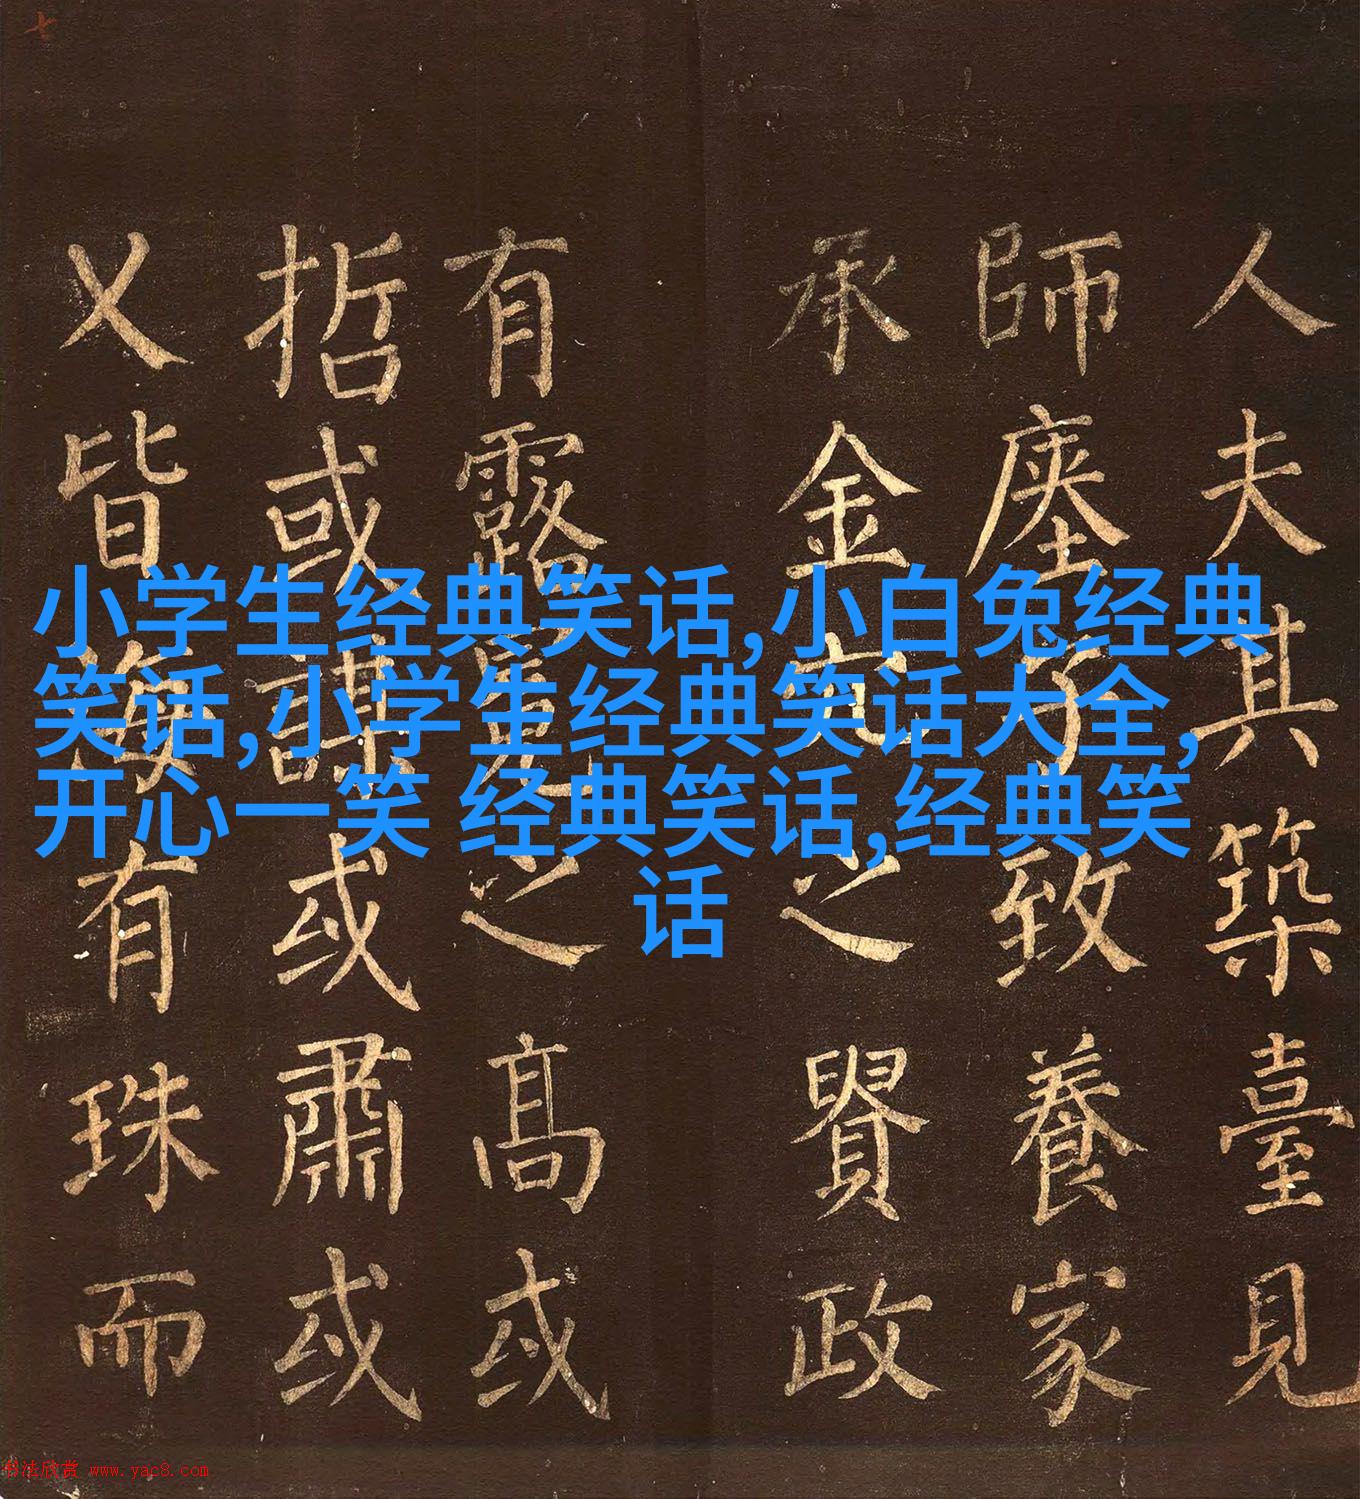 小学生经典笑话,小白兔经典
笑话,小学生经典笑话大全,
开心一笑 经典笑话,经典笑
话
人夫其築臺見
師子致養家
承金之賢政
有露冕之高或
哲或謀或肅或
乂皆海有珠而
书法欣赏 www.yac8.com